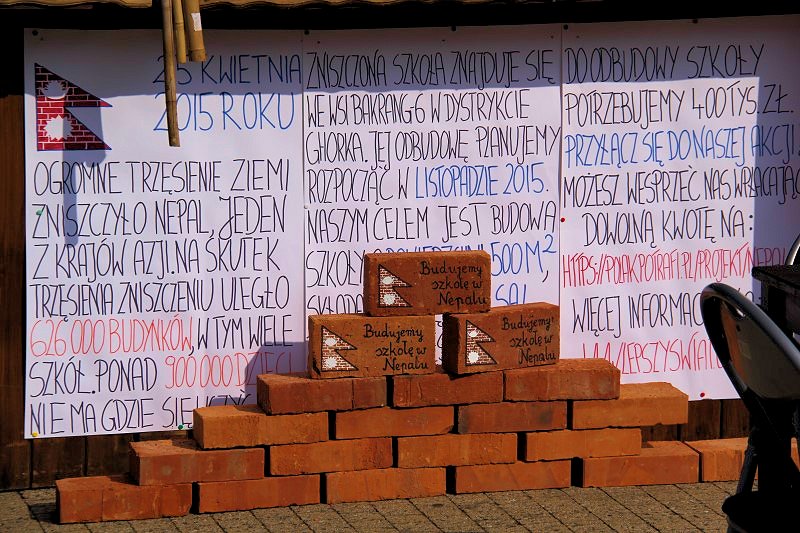 25 KWIETNIA
2015 ROKU
OGROMNE TRZĘSIENIE ZIEMI
ZNISZCZYŁO NEPAL, JEDEN
Z KRAJÓW AZJI. NA SKUTEK
TRZĘSIENIA ZNISZCZENIU ULEGŁO
626 000 BUDYNKÓW, W TYM WIELE
SZKÓŁ. PONAD 900 000 DZIECI
NIE MA GDZIE SIĘ
ZNISZCZONA SZKOŁA ZNAJDUJE SIĘ
WE WSI BAKRANG 6 W DYSTRYKCIE
GHORKA. JEJ ODBUDOWĘ PLANUJEMY
ROZPOCZĄĆ W LISTOPADZIE 2015.
NASZYM CELEM JEST BUDOWA
SZKOŁY O 500 M²,
DO ODBUDOWY SZKOŁY
POTRZEBUJEMY 400 TYS. ZŁ.
PRZYŁĄCZ SIĘ DO NASZEJ AKCJI.
MOŻESZ WESPRZEĆ NAS WPŁACAJĄC
DOWOLNĄ KWOTĘ NA:
HTTPS://POLAKPOTRAFI.PL/PROJEKT/NEPAL
WIĘCEJ
Budujemy
szkołę w
Nepalu
Budujemy
szkołę w
Nepalu
Budujemy
szkołę w
Nepalu